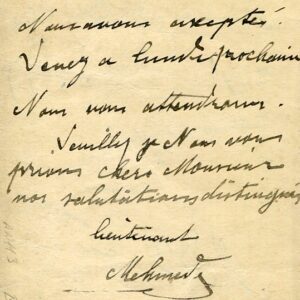 Nous avons accepté.
Venez a lundi prochain
Nous vous attendrons.
Veuillez je Nous vous
prions chers Monsieur
nos salutations distinguées
lieutenant
Mehmed